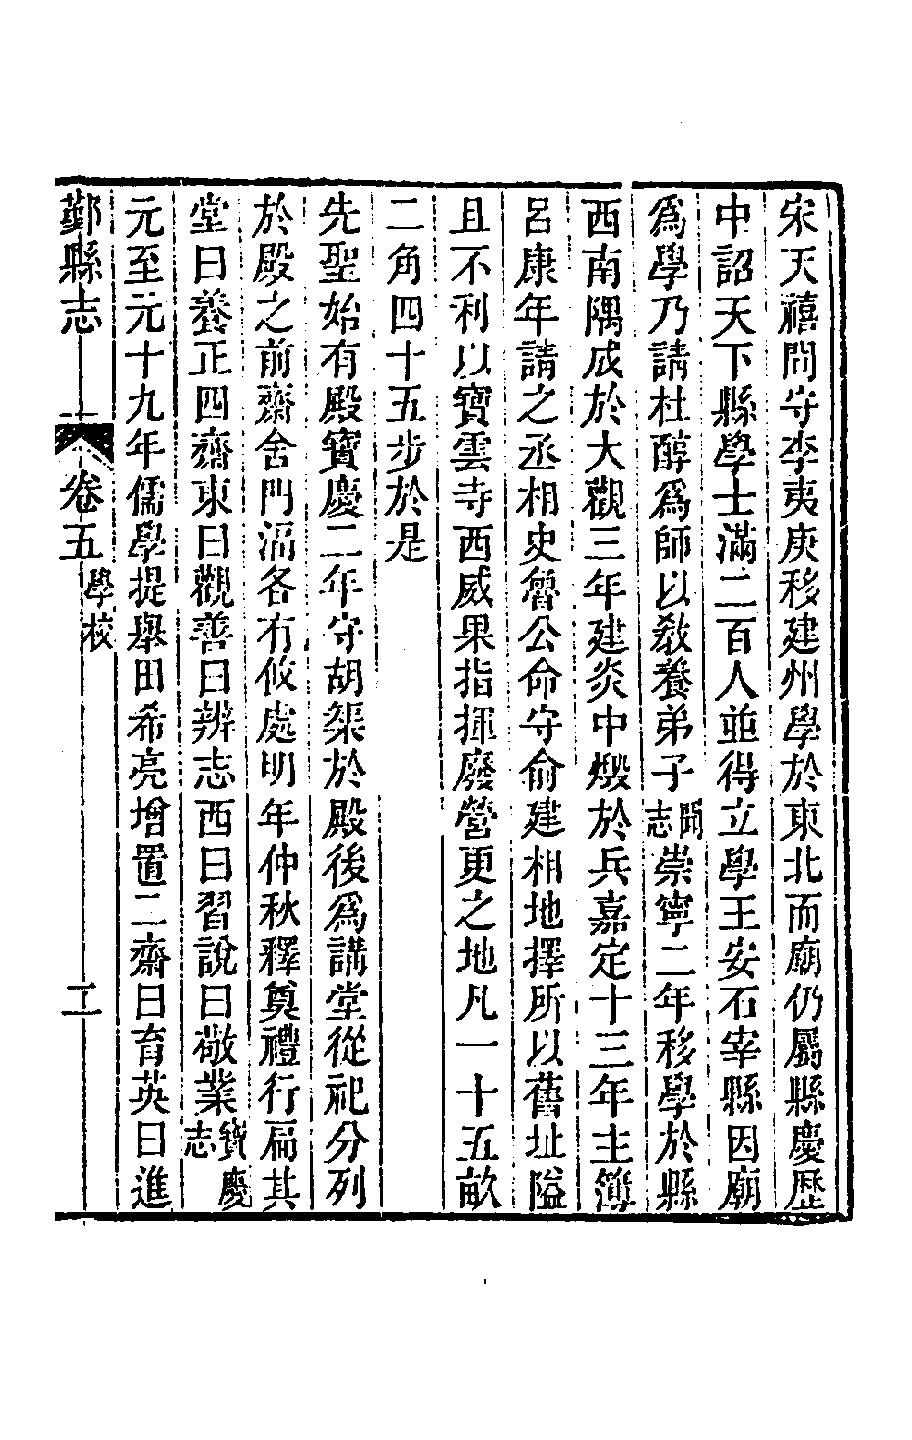 宋天禧間守李夷庚移建州學於東北而廟仍屬縣慶歷
中詔天下縣學士滿二百人並得立學王安石宰縣因廟
為學乃請杜醇為師以敎養弟子聞志崇寧二年移學於縣
西南隅成於大觀三年建炎中燬於兵嘉定十三年主簿
呂康年請之丞相史魯公命守俞建相地擇所以舊址隘
且不利以寶雲寺西威果指揮廢營更之地凡一十五畝
二角四十五步於是
先聖始有殿寶慶二年守胡榘於殿後為講堂從祀分列
於殿之前齋舍門湢各有攸處明年仲秋釋奠禮行扁其
堂曰養正四齋東曰觀善曰辨志西曰習說曰敬業寶慶志
元至元十九年儒學提舉田希亮增置二齋曰育英曰進
鄞縣志 卷五 學校 二